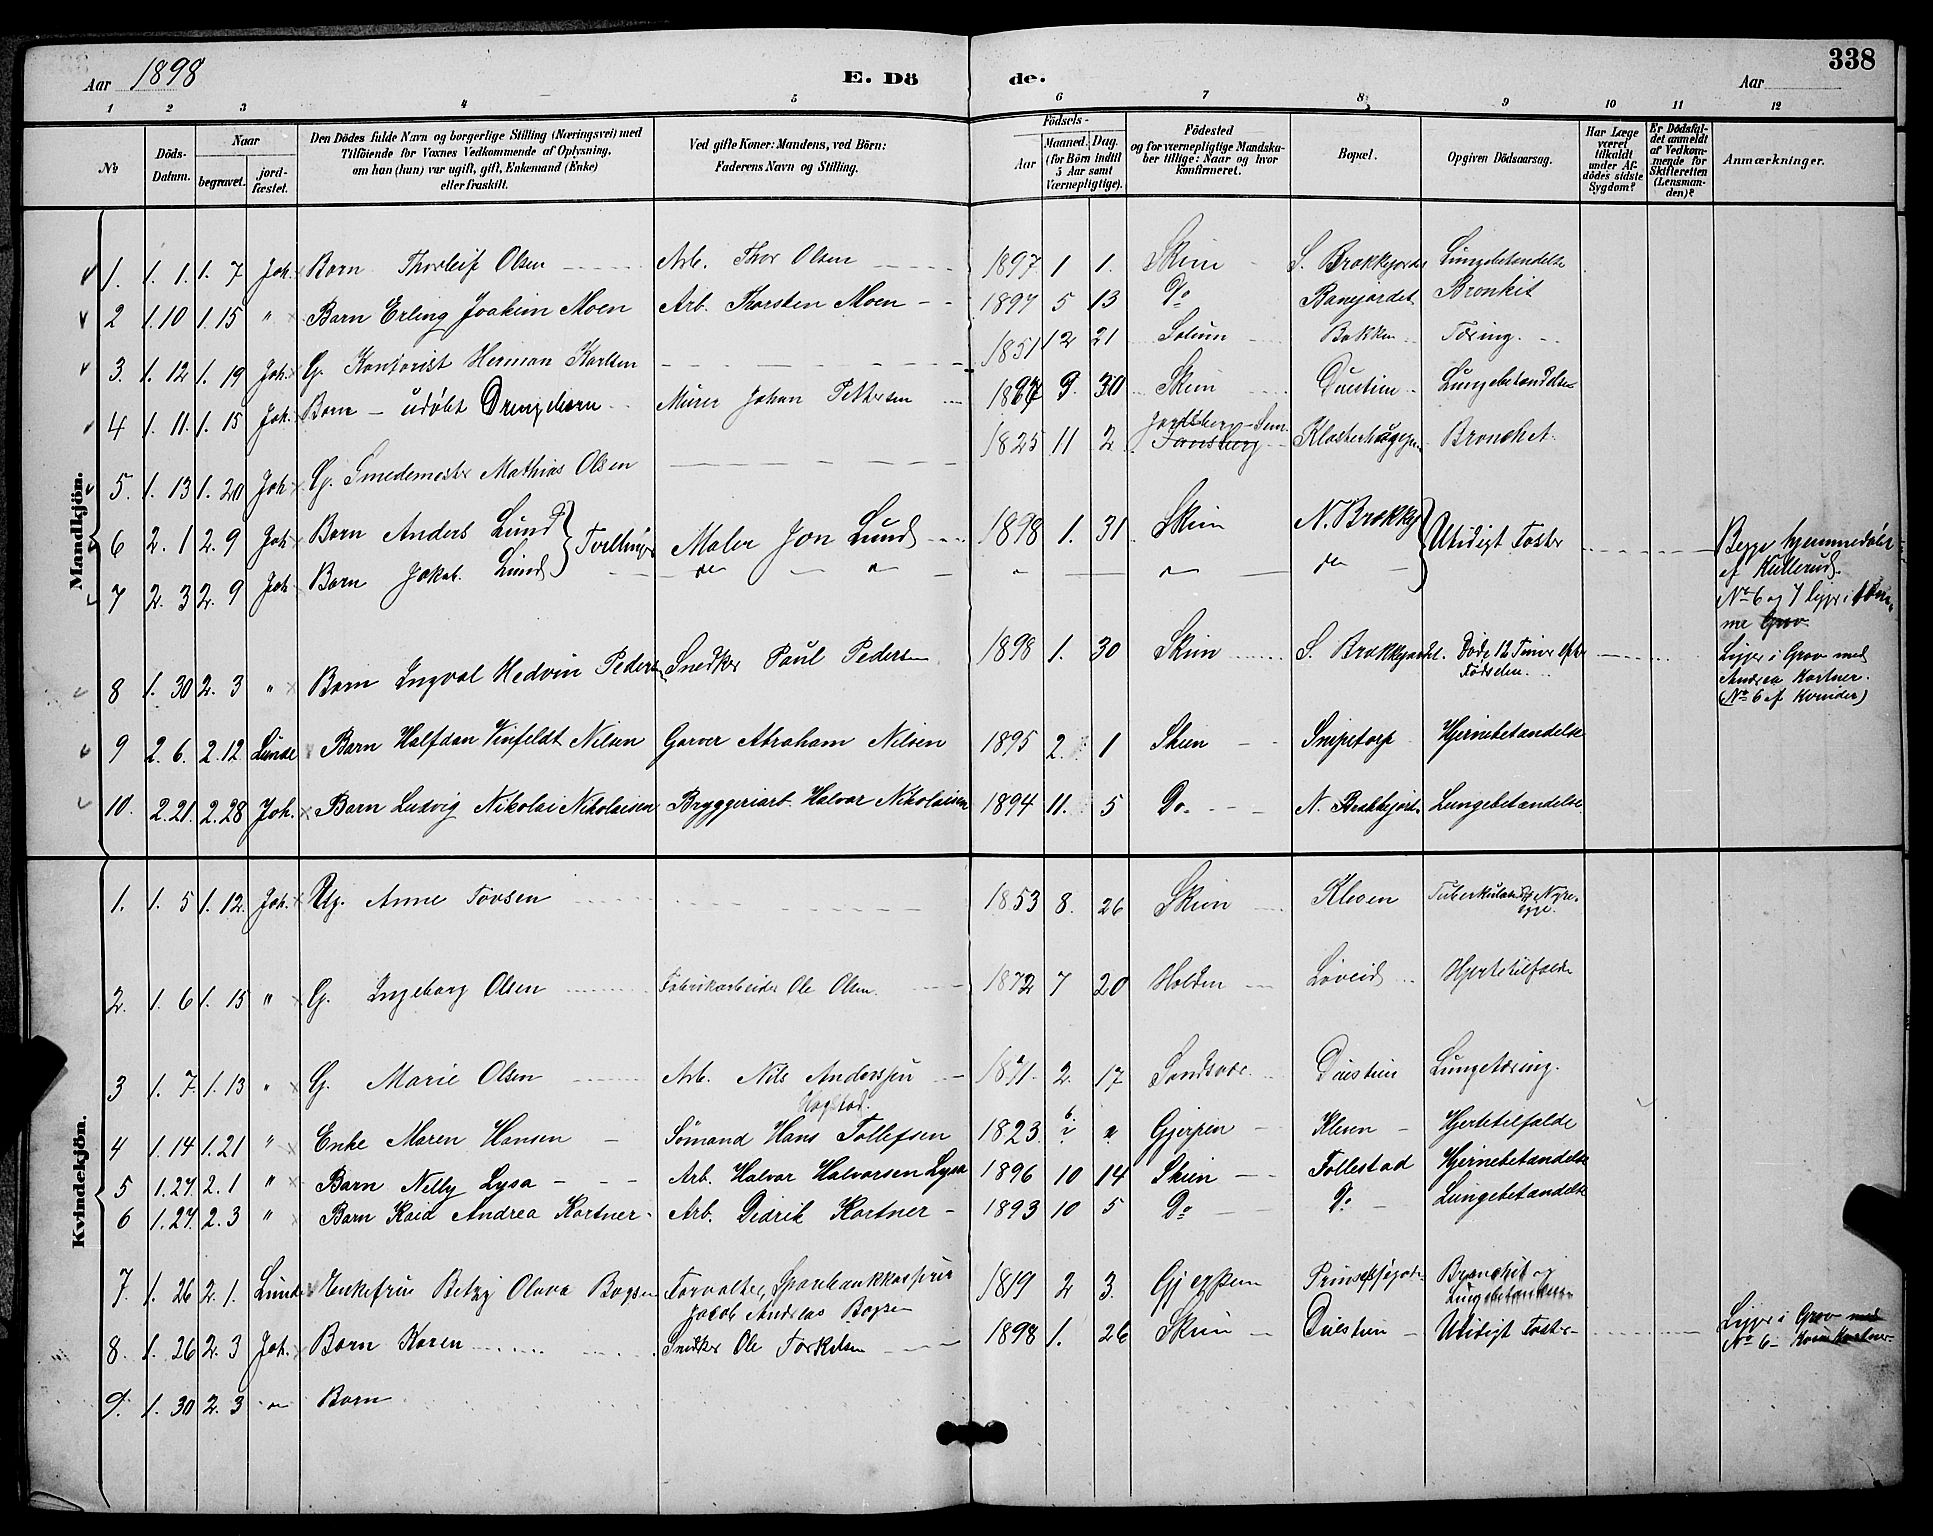 Aar 1898 E. Dö de. Aar 338
1 2 3 4 5 6 7 8 9 10 11 12
No
Döds-
Datum.
Naar
begravet.
jord-
fæstet.
Den Dödes fulde Navn og borgerlige Stilling (Næringsvei) med
Tilföiende for Voxnes Vedkommende af Oplysning,
om han (hun) var ugift, gift, Enkemand (Enke)
eller fraskilt.
Ved gifte Koner: Mandens, ved Börn:
Faderens Navn og Stilling.
Födsels-
Aar
Maaned. Dag.
(for Börn indtil
5 Aar samt
Værnepligtige).
Födested
og for værnepligtige Mandska-
ber tillige: Naar og hvor
konfirmeret.
Bopæl.
Opgiven Dödsaarsag.
Har Læge
været
tilkaldt
under Af-
dödes sidste
Sygdom?
Er Dödsfal-
det anmeldt
af Vedkom-
mende for
Skifteretten
(Lensman-
den)?
Anmærkninger.
Mandkjön.
1. 1. 1. 1. 7 Joh. Barn Thorleif Olsen Arb. Thor Olsen 1897 1 1. Skien S. Brækkejordet Lungebetændelse
2 1. 10 1. 15 " Barn Erling Joakim Moen Arb. Thorsten Moen 1897 5 13 Do Banejordet Bronkit
3. 1. 12 1. 19 Joh. G. Kontorist Herman Karlsen 1851 12 21 Solum Bakken Tæring.
4 1. 11. 1. 15 Joh. Barn – udöbt Drengebarn Murer Johan Pettersen 1897 9. 30 Skien Duestien Lungebetændelse
5. 1. 13 1. 20 Joh. G. Smedemester Mathias Olsen 1825 11 2 Jarlsberg – Sem Tønsberg Klosterhougen Bronchit.
6 2. 1 2. 9 Joh. Barn Anders Lund } Tvillinger Maler Jon Lund 1898 1. 31 Skien N. Brækkej } Utidigt Foster Begge hjemmedøbt
af Kullerud.
7 2. 3 2. 9 Joh. Barn Jakob Lund do " " do No 6 og 7 ligger i samme
Grav
8 1. 30 2. 3 " Barn Ingval Hedvin Pedersen Snedker Paul Pedersen 1898 1. 30 Skien S. Brækkejordet. Døde 12 Timer efter
Födselen. Ligger i Grav med
Andrea Kortner.
(No 6 af Kvinder)
9 2. 6. 2. 12 Lunde Barn Halfdan Vinfeldt Nilsen Garver Abraham Nilsen 1895 2. 1 Skien Snipetorp Hjernebetændelse
10. 2. 21. 2. 28 Joh. Barn Ludvig Nikolai Nikolaisen Bryggeriarb. Halvor Nikolaisen 1894 11. 5 Do. N. Brækkejord. Lungebetændelse
Kvindekjön.
1. 1. 5 1. 12. Joh. Ug. Anne Tovsen 1853 8. 26 Skien Kleven Tuberkuløs Nyre-
2. 1. 6 1. 15 " G. Ingeborg Olsen Fabrikarbeider Ole Olsen. 1872 7 20 Holden Løveid Hjertetilfælde
3 1. 7. 1. 13 " G. Marie Olsen Arb. Nils Anderssen
Hogstad. 1871. 2. 17 Sandsvær Duestien Lungetæring.
4 1. 14 1. 21 " Enke Maren Hansen Sømand Hans Tollefsen 1823. 6. Gjerpen Kleven Hjertetilfælde
5 1. 27. 2. 1 " Barn Nelly Lysa Arb. Halvor Halvorsen Lysa 1896 10 14 Skien Follestad Hjernebetændelse
6 1. 27. 2. 3 " Barn Kaid Andrea Kortner Arb. Didrik Kortner 1893 10 5 Do Do Lungebetændelse
7. 1. 26 2. 1. Lunde Enkefrue Betzy Olava Bogsen Forvalter, Sparebankkasserer
Jacob Andreas Bogsen 1819 2 3. Gjerpen Prinsessegade Bronchit og
Lungebetændelse
8. 1. 26 2. 3 Joh. Barn Karen Snedker Ole Torkelsen 1898 1. 26 Skien Duestien Utidigt Foster Ligger i Grav med
No 6 – Kortner
9. 1. 30 2. 3 " Barn